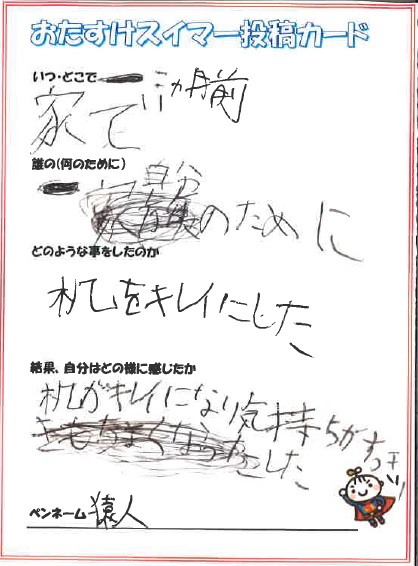 おたすけスイマー投稿カード
いつ・どこで
家で 一ヵ月前
誰の(何のために)
自分
のために
どのような事をしたのか
机をキレイにした
結果、自分はどの様に感じたか
机がキレイになり気持ちがすっキリ
した
ペンネーム 猿人